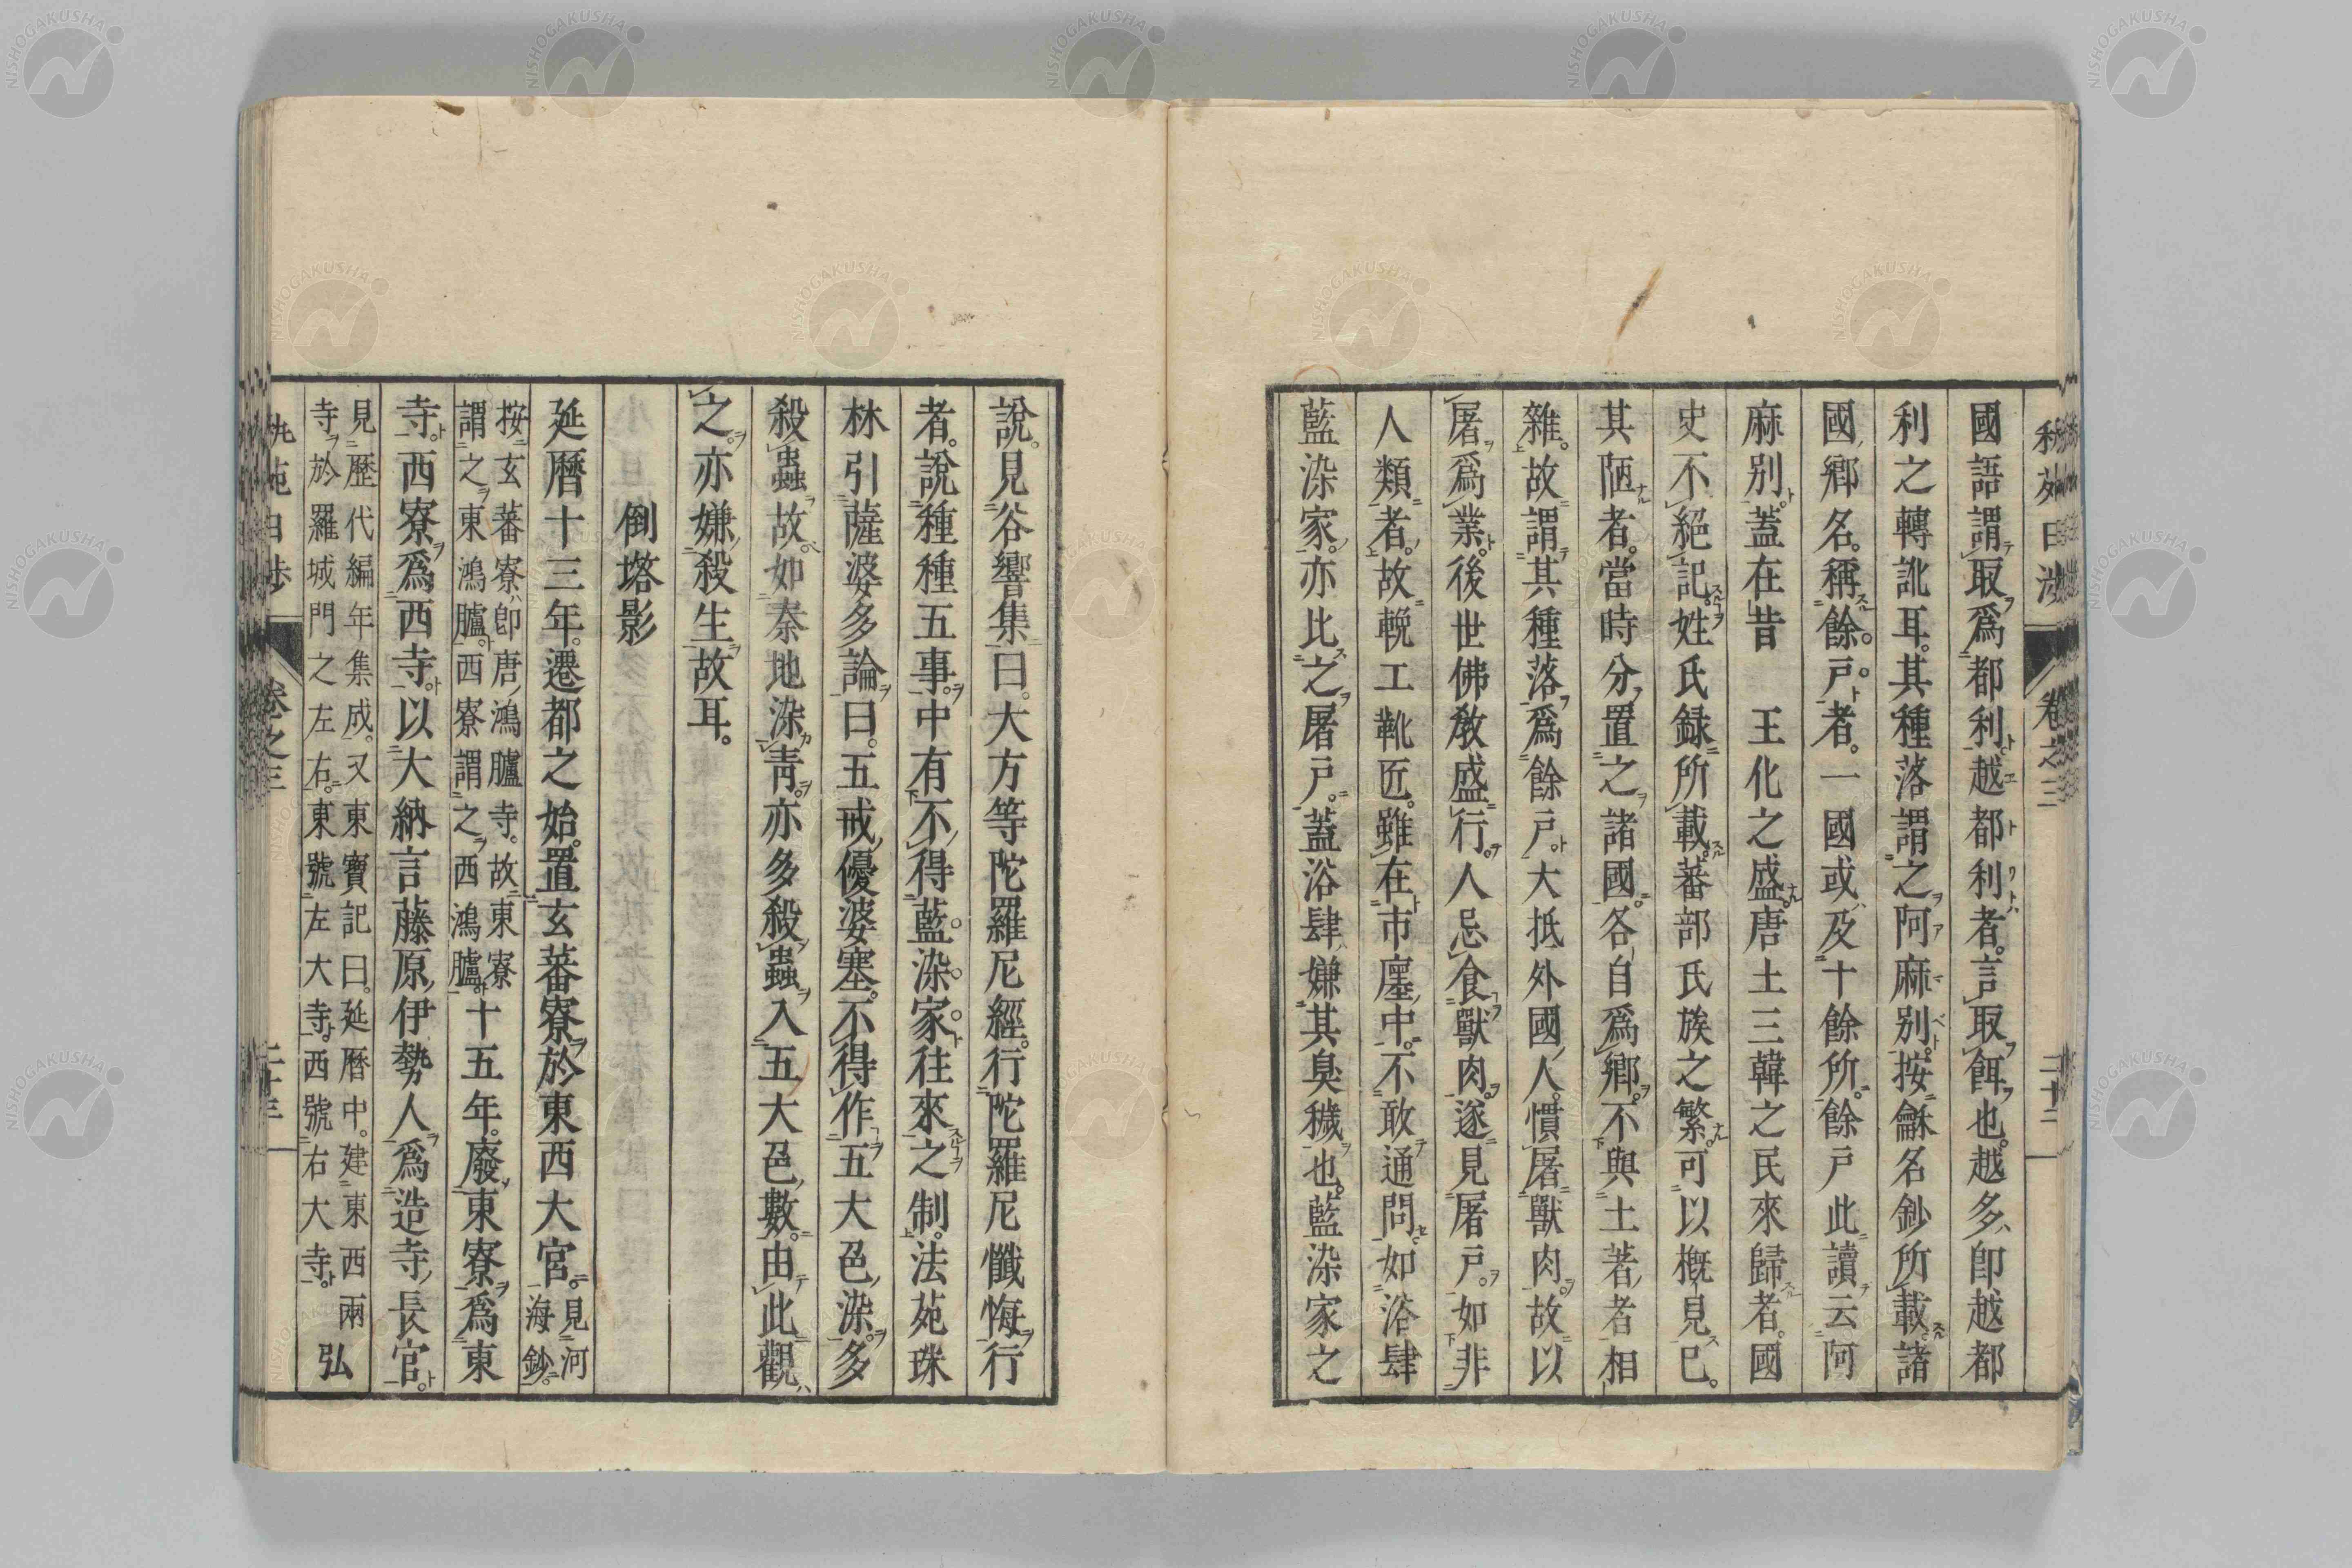 秇苑日涉 卷之三 二十二
國語謂取爲都利越都利者。言取餌也。越多卽越都
利之轉訛耳。其種落謂之阿麻別。按龢名鈔所載諸
國鄉名。稱餘戸者。一國或及十餘所。餘戸此讀云阿
麻別。蓋在昔 王化之盛。唐土三韓之民來歸者。國
史不絕記。姓氏録所載蕃部氏族之繁。可以概見已。
其陋者。當時分置之諸國。各自爲鄉。不與土著者相
雜。故謂其種落爲餘戸。大抵外國人。慣屠獸肉。故以
屠爲業。後世佛敎盛行。人忌食獸肉。遂見屠戸。如非
人類者。故輓工靴匠。雖在市廛中。不敢通問。如浴肆
藍染家。亦比之屠戸。蓋浴肆嫌其臭穢也。藍染家之
說。見谷響集曰。大方等陀羅尼經。行陀羅尼懺悔行
者。說種種五事。中有不得藍染家往來之制。法苑珠
林引薩婆多論曰。五戒優婆塞。不得作五大色染。多
殺蟲故。如秦地染靑。亦多殺蟲入五大色數。由此觀
之。亦嫌殺生故耳。
倒塔影
延曆十三年。遷都之始。置玄蕃寮於東西大宮。見河海鈔。
按玄蕃寮卽唐鴻臚寺。故東寮謂之東鴻臚。西寮謂之西鴻臚。十五年。廢東寮爲東
寺。西寮爲西寺。以大納言藤原伊勢人爲造寺長官。
見歷代編年集成。又東寶記曰。延曆中。建東西兩寺於羅城門之左右。東號左大寺。西號右大寺。弘
卷之三